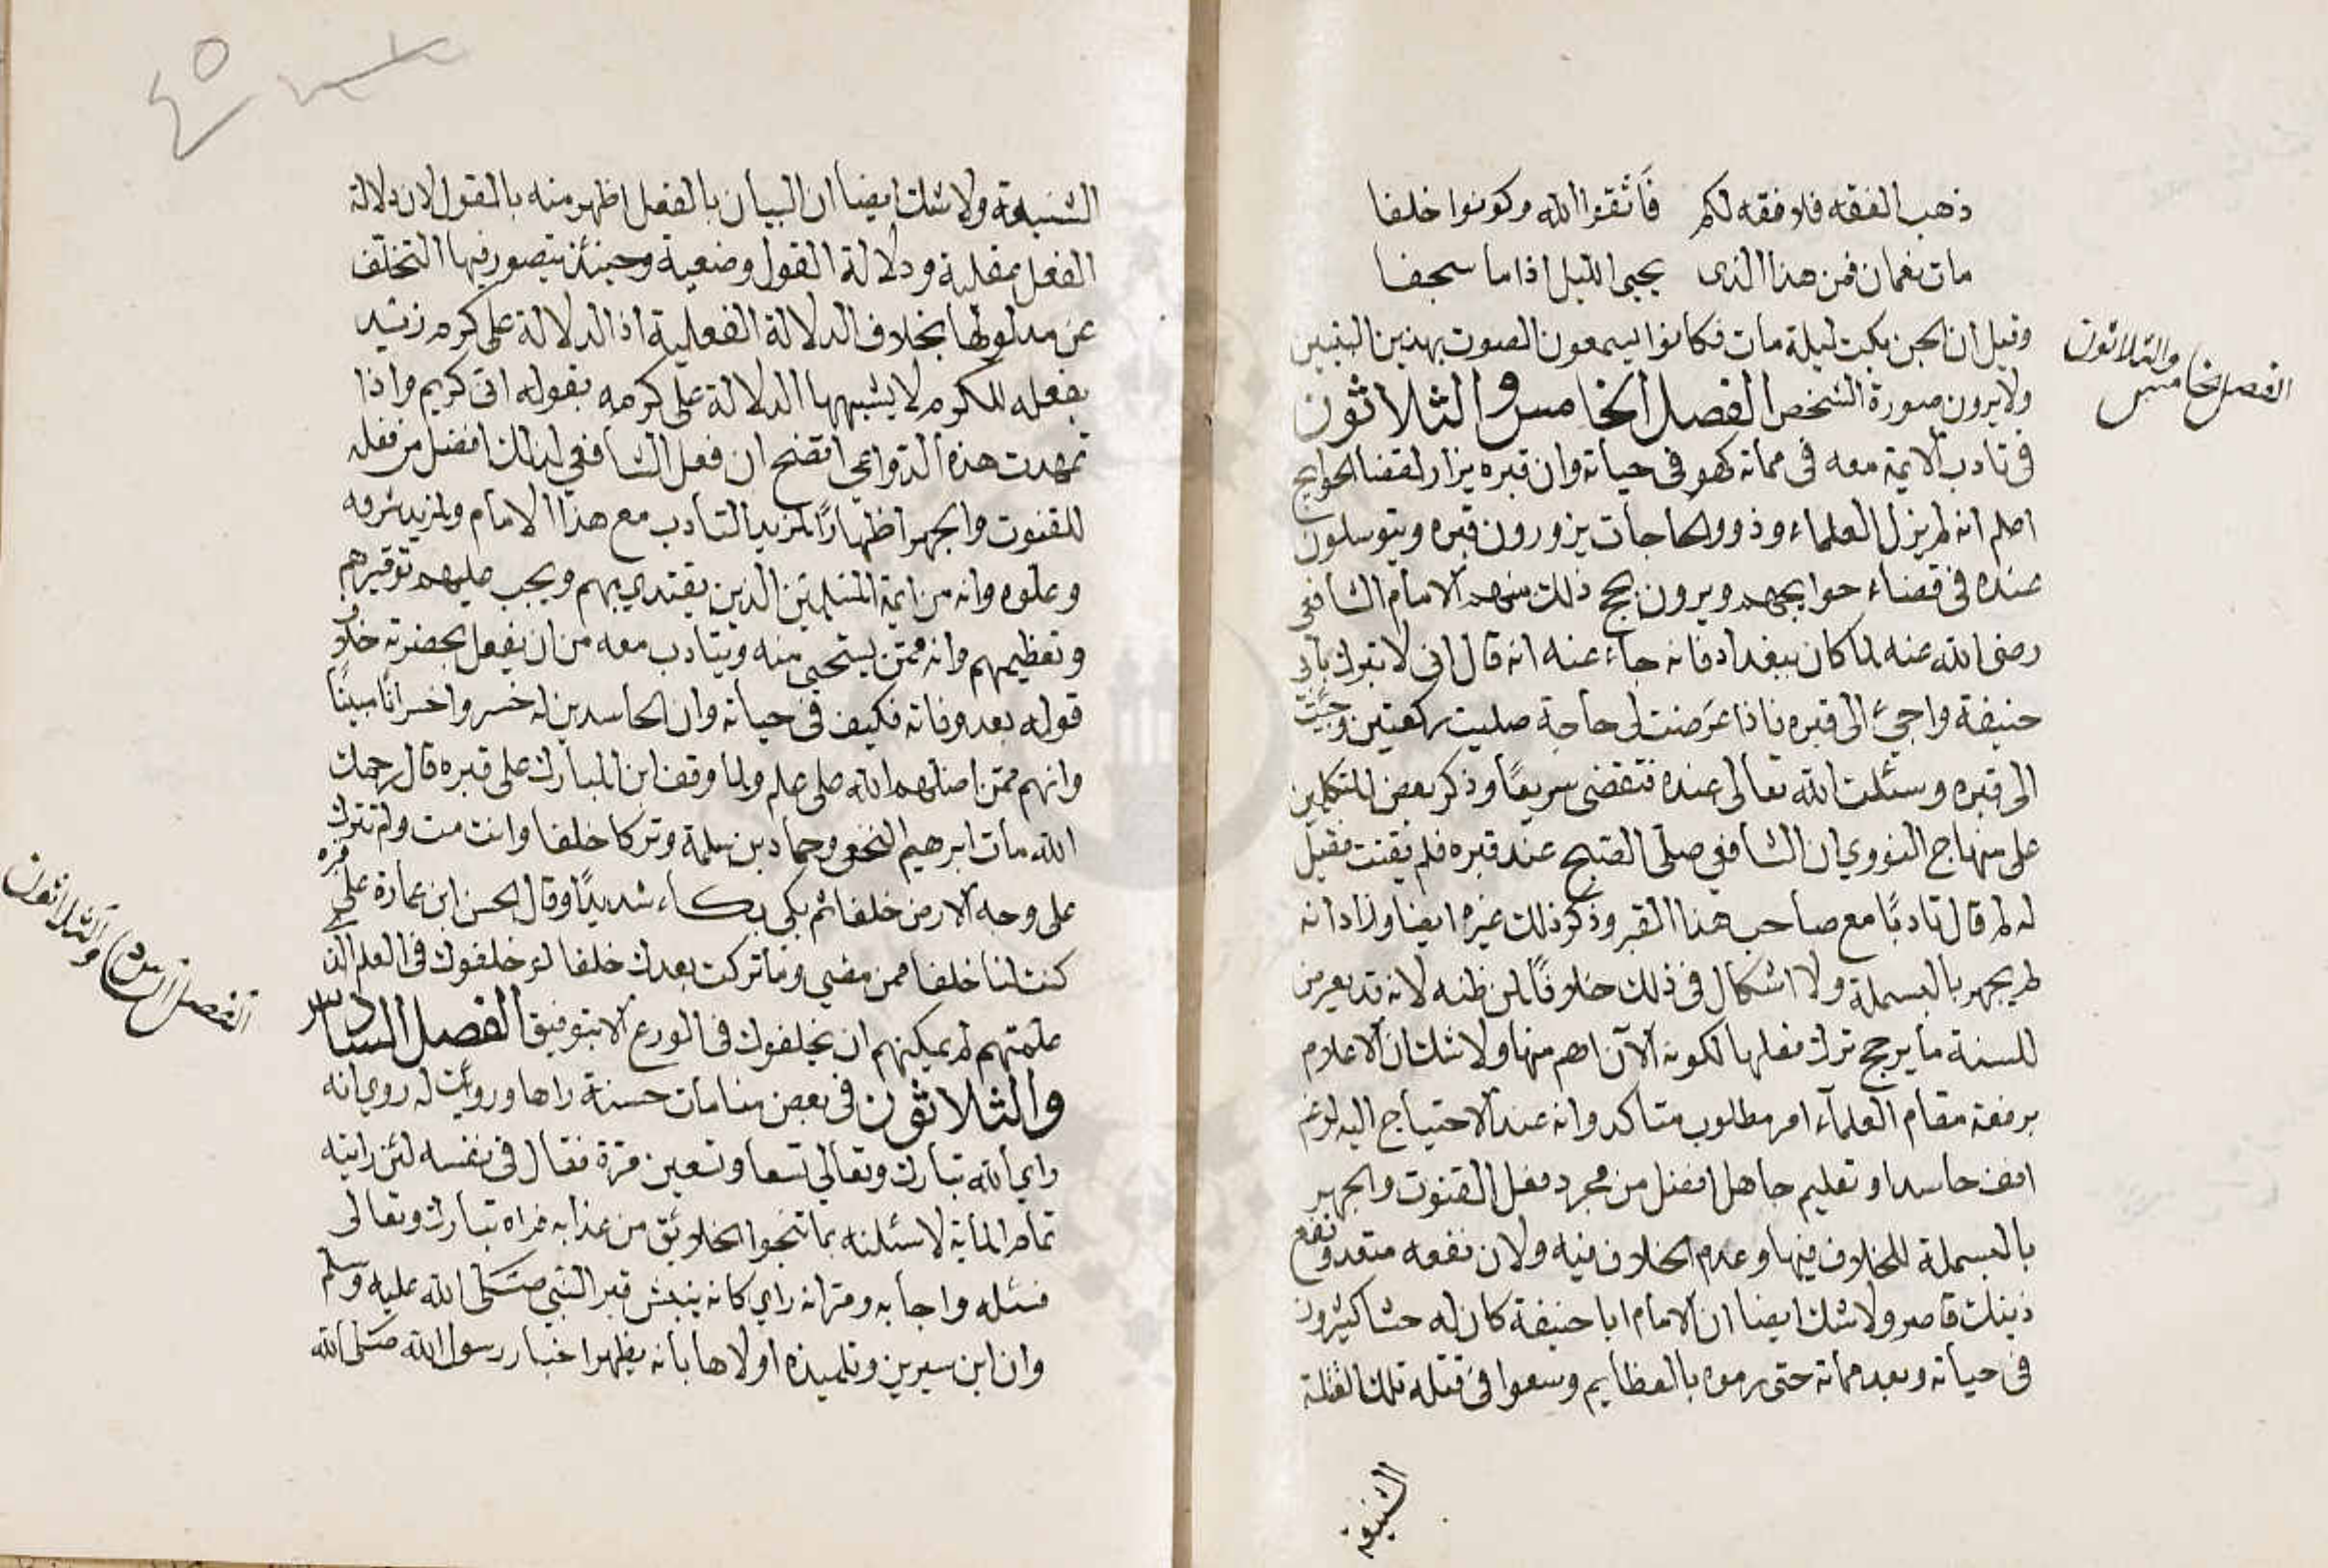 ذهب الفقه فلا فقه لكم فاتقوا الله وكونوا خلفا
مات نعمان فمن هذا الذى يحيى الليل اذا ما سجفا
وقيل ان الجن بكت ليلة مات فكانوا يسمعون الصوت بهذين البيتين
ولا يرون صورة الشخص الفصل الخامس والثلاثون
فى تادب الايمة معه فى مماته كهو فى حياته وان قبره يزار لقضا الحوايج
اعلم انه لم يزل العلماء وذوو الحاجات يزورون قبره ويتوسلون
عنده فى قضاء حوايجهم ويرون نجح ذلك منهم الامام الشافعى
رضى الله عنه لما كان ببغداد فانه جاء عنه انه قال انى لا تبرك بابى
حنيفة واجئ الى قبره فاذا عرضت لى حاجة صليت ركعتين وجئت
الى قبره وسئلت الله تعالى عنده فتقضى سريعا وذكر بعض المتكلمين
على منهاج النووي ان الشافعى صلى الصبح عند قبره فلم يقنت فقيل
له لم قال تادبا مع صاحب هذا القبر وذكر ذلك غيره ايضا وزاد انه
لم يجهر بالبسملة ولا اشكال فى ذلك خلافا لمن ظنه لانه قد يعرض
للسنة ما يرجح ترك فعلها لكونه الآن اهم منها ولا شك ان الاعلام
برفعة مقام العلماء امر مطلوب متاكد وانه عند الاحتياج اليه لرغم
انف حاسد او تعليم جاهل افضل من مجرد فعل القنوت والجهر
بالبسملة للخلاف فيها وعدم الخلاف فيه ولان نفعه متعد ونفع
ذينك قاصر ولا شك ايضا ان الامام ابا حنيفة كان له حساد كثيرون
فى حياته وبعد مماته حتى رموه بالعظايم وسعوا فى قتله تلك القتلة
الشنيعة
الفصل الخامس والثلاثون
الشنيعة ولا شك ايضا ان البيان بالفعل اظهر منه بالقول لان دلالة
الفعل عقلية ودلالة القول وضعية وحينئذ يتصور فيها التخلف
عن مدلولها بخلاف الدلالة الفعلية اذ الدلالة على كرم زيد
بفعله للكرم لا يشبهها الدلالة على كرمه بقوله انى كريم واذا
تمهدت هذه الدواعى اتضح ان فعل الشافعى لذلك افضل من فعله
للقنوت والجهر اظهارا لمزيد التادب مع هذا الامام ولمزيد شرفه
وعلوه وانه من ايمة المسلمين الذين يقتدي بهم ويجب عليهم توقيرهم
وتعظيمهم وانه ممن يستحيى منه ويتادب معه من ان يفعل بحضرته خلاف
قوله بعد وفاته فكيف فى حياته وان الحاسدين له خسروا خسرانا مبينا
وانهم ممن اضلهم الله على علم ولما وقف ابن المبارك على قبره قال رحمك
الله مات ابرهيم النخعى وحماد بن سلمة وتركا خلفا وانت مت ولم تترك
على وجه الارض خلفا ثم بكى بكاء شديدا وقال الحسن ابن عمارة على قبره
كنت لنا خلفا ممن مضى وما تركت بعدك خلفا لو خلفوك فى العلم الذى
علمتهم لم يمكنهم ان يخلفوك فى الورع الا بتوفيق الفصل السادس
والثلاثون فى بعض منامات حسنة راها ورويت له روي انه
راي الله تبارك وتعالي تسعا وتسعين مرة فقال فى نفسه لئن رايته
تمام الماية لاسئلنه بما تنجوا الخلايق من عذابه فراه تبارك وتعالى
فسئله واجابه ومر انه راي كانه ينبش قبر النبي صلى الله عليه وسلم
وان ابن سيرين وتلميذه اولاها بانه يظهر اخبار رسول الله صلى الله
الفصل السادس والثلاثون